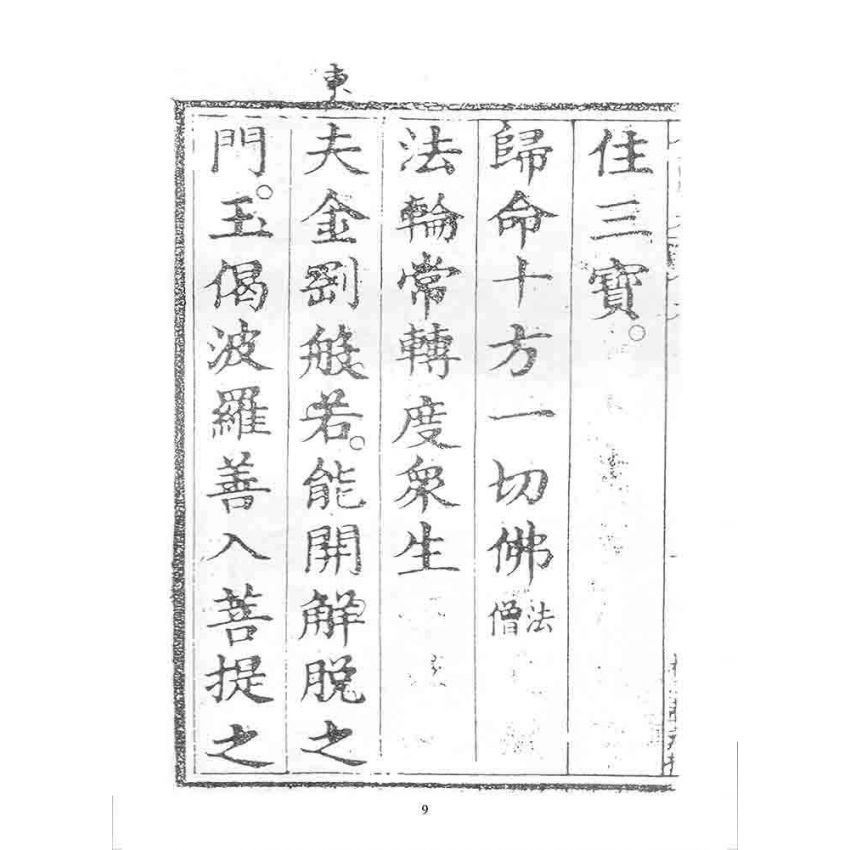 住三寳。
歸命十方一切佛法僧
法輪常轉度衆生
夫金剛般若。能開解脱之
門。玉偈波羅善入菩提之
9